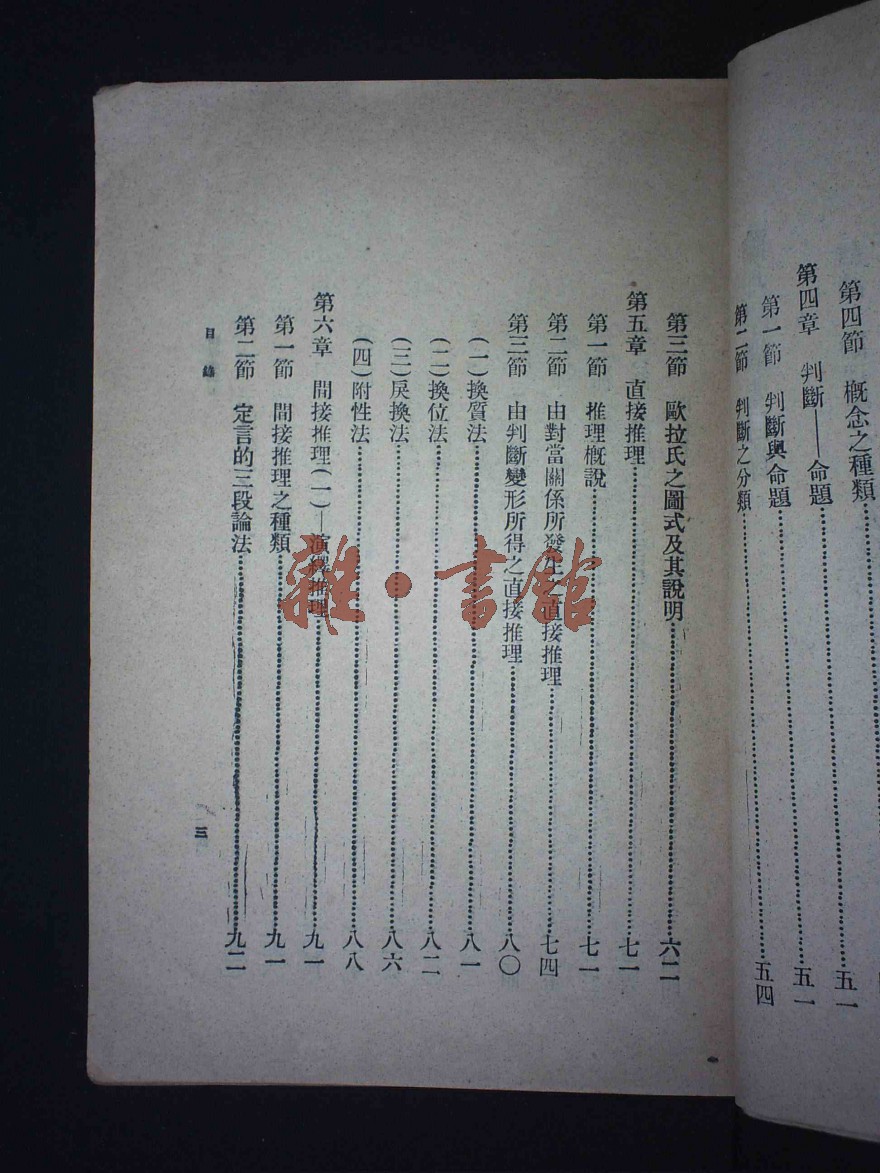 第四節　概念之種類……五一
第四章　判斷——命題……五一
第一節　判斷與命題
第二節　判斷之分類……五四
第三節　歐拉氏之圖式及其說明……六二
第五章　直接推理……七一
第一節　推理概說……七一
第二節　由對當關係所發生之直接推理……七四
第三節　由判斷變形所得之直接推理……八〇
(一)換質法……八一
(二)換位法……八二
(三)戾換法……八六
(四)附性法……八八
第六章　間接推理(一)—演繹推理……九一
第一節　間接推理之種類……九一
第二節　定言的三段論法……九二
目錄
三
雜·書館